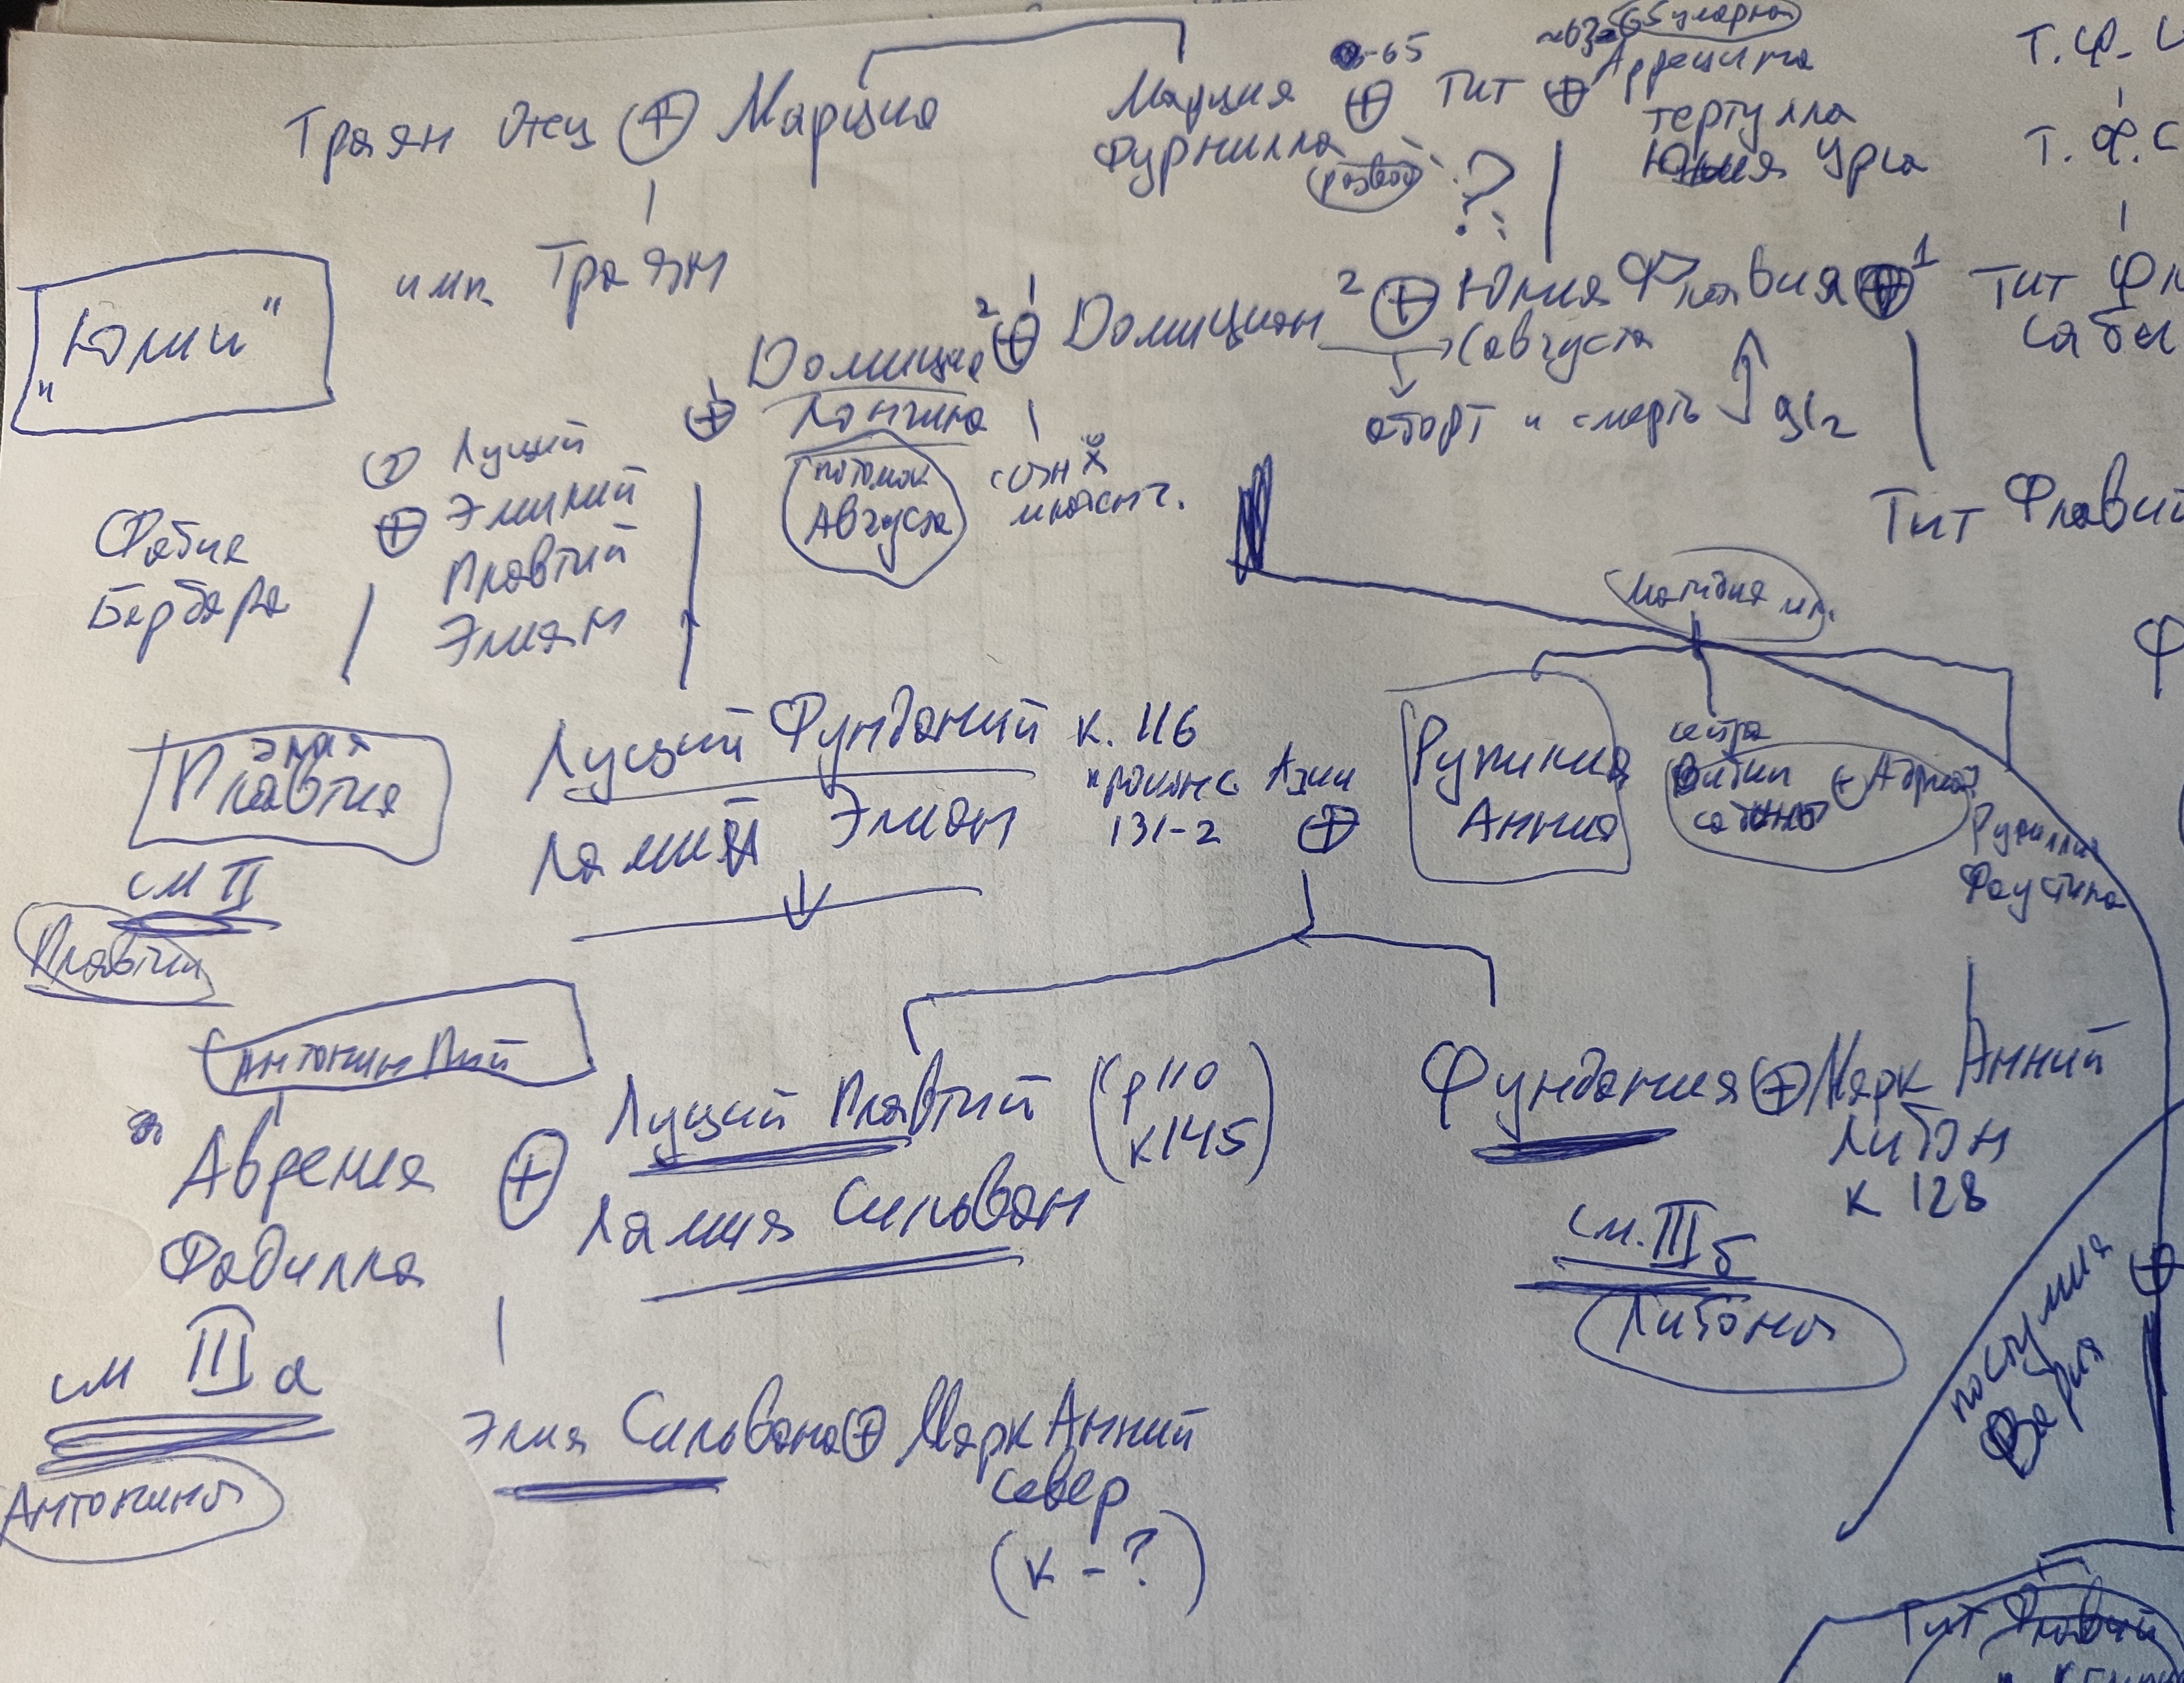 Траян отец ⊕ Марция
Марция
Фурнилла
-65
⊕ Тит ⊕
Аррецина
тертулла
Юлия Урса
Т. Ф.
Т. Ф. С
имп. Траян
"Юлии"
Домиция
Лонгина
2 ⊕ 1 Домициан 2 ⊕ Юлия Флавия ⊕ 1 Тит Фл
(августа
саби
аборт и смерть
91г
потомок
Августа
сын
младенч.
Фабия
Барбара
② Луций
⊕ Элиний
Плавтий
Элиан
Тит Флавий
Матидия мл.
Ф
Элия
Плавтия
см II
Плавтии
Луций Фунданий к. 116
Ламий Элиан
проконс. Азии
131-2 ⊕
Рупилия
Анния
сестра
Вибии
сабины
Рупилия
Фаустина
Антонин Пий
Аврелия
Фадилла
⊕ Луций Плавтий (р 110
к 145)
Ламия Сильван
Фундания ⊕ Марк Анний
Либон
к 128
см. III б
Либоны
см III а
Антонины
Элия Сильвана ⊕ Марк Анний
север
(к - ?)
постумия
Вария
⊕
Тит Флавий